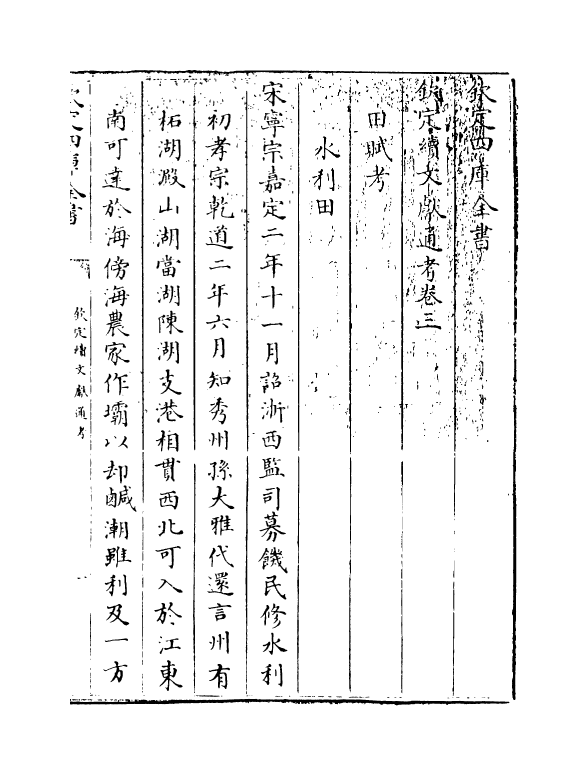 欽定四庫全書
欽定續文獻通考卷三
田賦考
水利田
宋寧宗嘉定二年十一月詔浙西監司募饑民修水利
初孝宗乾道二年六月知秀州孫大雅代還言州有
柘湖澱山湖當湖陳湖支港相貫西北可入於江東
南可達於海傍海農家作壩以却鹹潮雖利及一方
欽定四庫全書
欽定續文獻通考